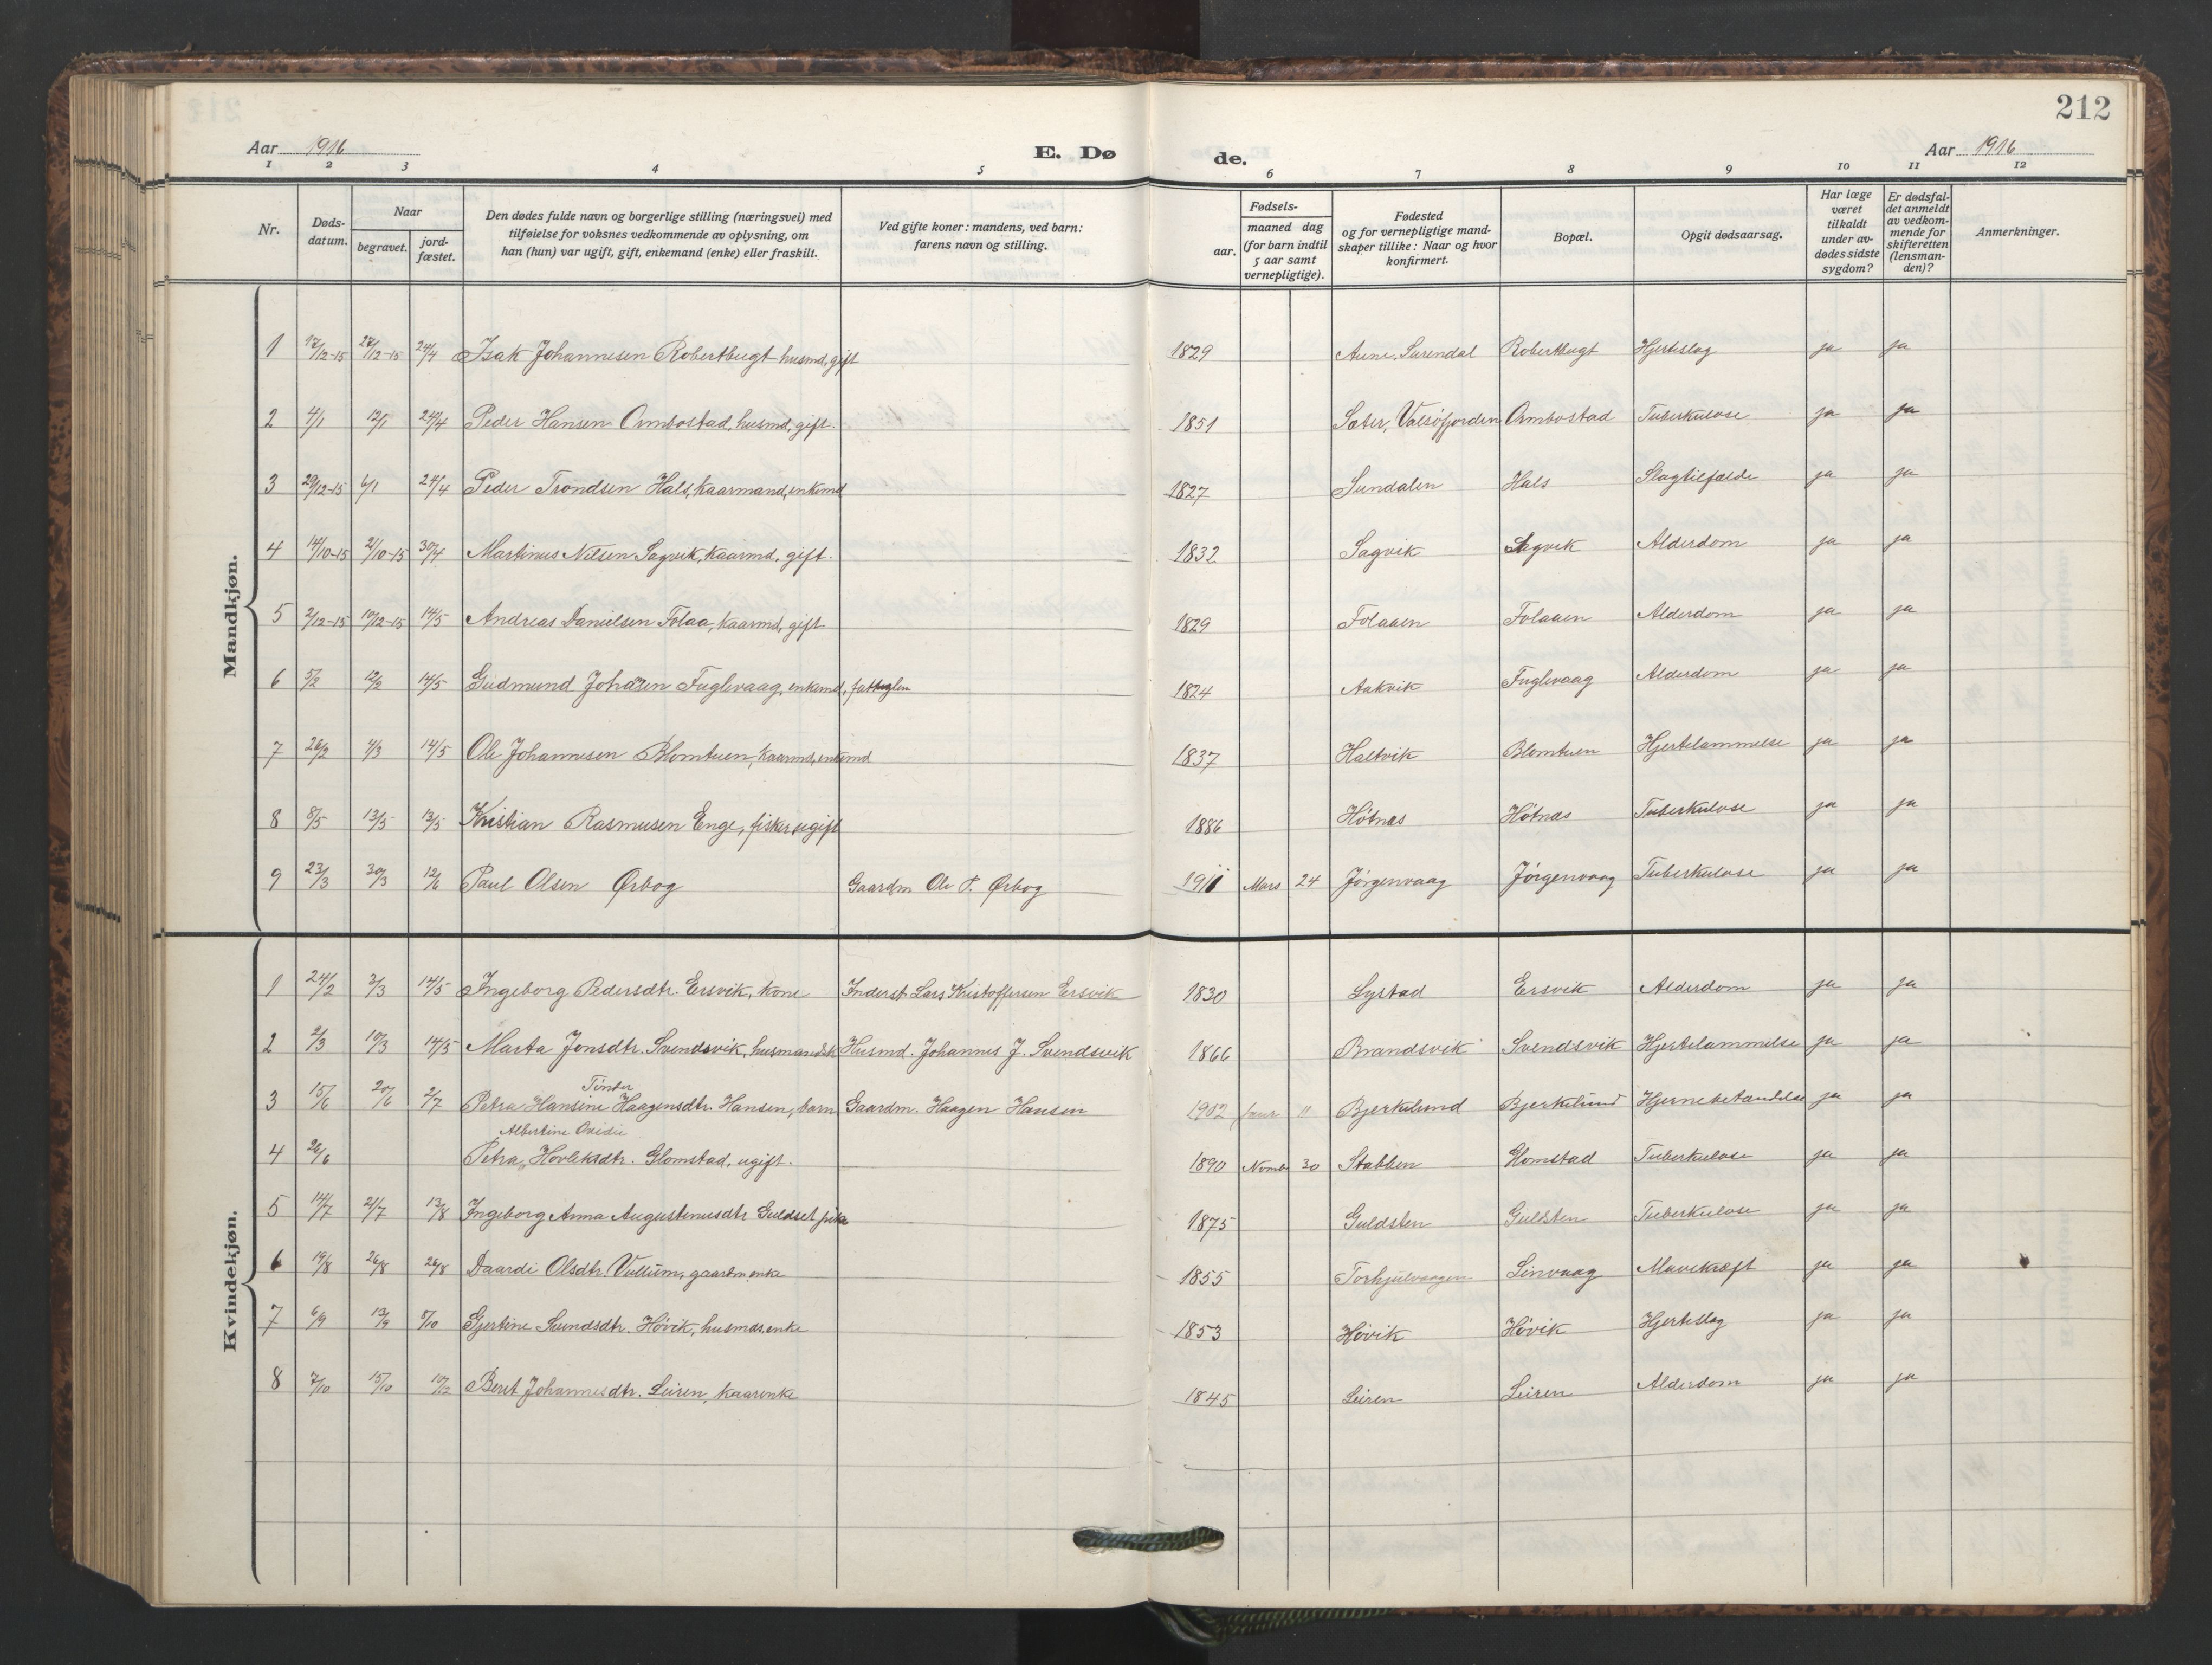 212
Aar 1916 E. Dø de. Aar 1916
1 2 3 4 5 6 7 8 9 10 11 12
Nr. Døds-datum. Naar begravet. jord-fæstet. Den dødes fulde navn og borgerlige stilling (næringsvei) med tilføielse for voksnes vedkommende av oplysning, om han (hun) var ugift, gift, enkemand (enke) eller fraskilt. Ved gifte koner: mandens, ved barn: farens navn og stilling. Fødsels- aar. maaned dag (for barn indtil 5 aar samt vernepligtige). Fødested og for vernepligtige mand-skaper tillike: Naar og hvor konfirmert. Bopæl. Opgit dødsaarsag. Har læge været tilkaldt under av-dødes sidste sygdom? Er dødsfal-det anmeldt av vedkom-mende for skifteretten (lensman-den)? Anmerkninger.
Mandkjøn.
1 17/12-15 27/12-15 24/4 Isak Johannesen Robertbugt husmd, gift 1829 Aune, Surendal Robertbugt Hjerteslag ja ja
2 4/1 12/1 24/4 Peder Hansen Ormbostad, husmd, gift. 1851 Sæter, Valsöfjorden Ormbostad Tuberkulose ja ja
3 29/12-15 6/1 24/4 Peder Trondsen Hals, kaarmand, enkemd 1827 Sundalen Hals Slagtilfælde ja ja
4 14/10-15 2/10-15 30/4 Martinus Nilsen Sagvik, kaarmd, gift. 1832 Sagvik Sagvik Alderdom ja ja
5 2/12-15 10/12-15 14/5 Andreas Danielsen Folaa, kaarmd, gift 1829 Folaaen Folaaen Alderdom ja ja
6 5/2 12/2 14/5 Gudmund Johansen Fuglevaag, enkemd, fattiglem 1824 Aakvik Fuglevaag Alderdom ja ja
7 26/2 4/3 14/5 Ole Johannesen Blomtuen, kaarmd, enkemd 1837 Haltvik Blomtuen Hjertelammelse ja ja
8 8/5 13/5 13/5 Kristian Rasmusen Enge, fisker, ugift 1886 Hótnæs Hótnæs Tuberkulose ja ja
9 23/3 30/3 12/6 Paul Olsen Ørbog Gaardm Ole P. Ørbog 1911 Mars 24 Jörgenvaag Jörgenvaag Tuberkulose ja ja
Kvindekjøn.
1 24/2 3/3 14/5 Ingeborg Pedersdtr. Ersvik, kone Inderst Lars Kristoffersen Ersvik 1830 Lystad Ersvik Alderdom ja ja
2 2/3 10/3 14/5 Marta Jonsdtr. Svendsvik, husmandsk Husmd. Johannes J. Svendsvik 1866 Brandsvik Svendsvik Hjertelammelse ja ja
Tinder
3 15/6 20/6 2/7 Petra Hansine Haagensdtr. Hansen, barn Gaardm. Haagen Hansen 1902 11 Bjerkelund Bjerkelund Hjernebetændelse ja ja
Albertine Ovidie
4 26/6 Petra Hovleksdtr. Glomstad, ugift. 1890 Novmb 30 Stabben Glomstad Tuberkulose ja ja
5 14/7 21/7 13/8 Ingeborg Anna Augustinusdtr Guldset pike 1875 Guldsten Guldsten Tuberkulose ja ja
6 19/8 26/8 26/8 Daardi Olsdtr. Vullum, gaardm.enke 1855 Torhjulvaagen Linvaag Mavekræft ja ja
7 6/9 13/9 8/10 Gjertine Sundsdtr. Hövik, husmds.enke 1853 Hövik Hövik Hjerteslag ja ja
8 7/10 15/10 10/12 Beret Johannesdtr. Leiren, kaarenke 1845 Leiren Leiren Alderdom ja ja